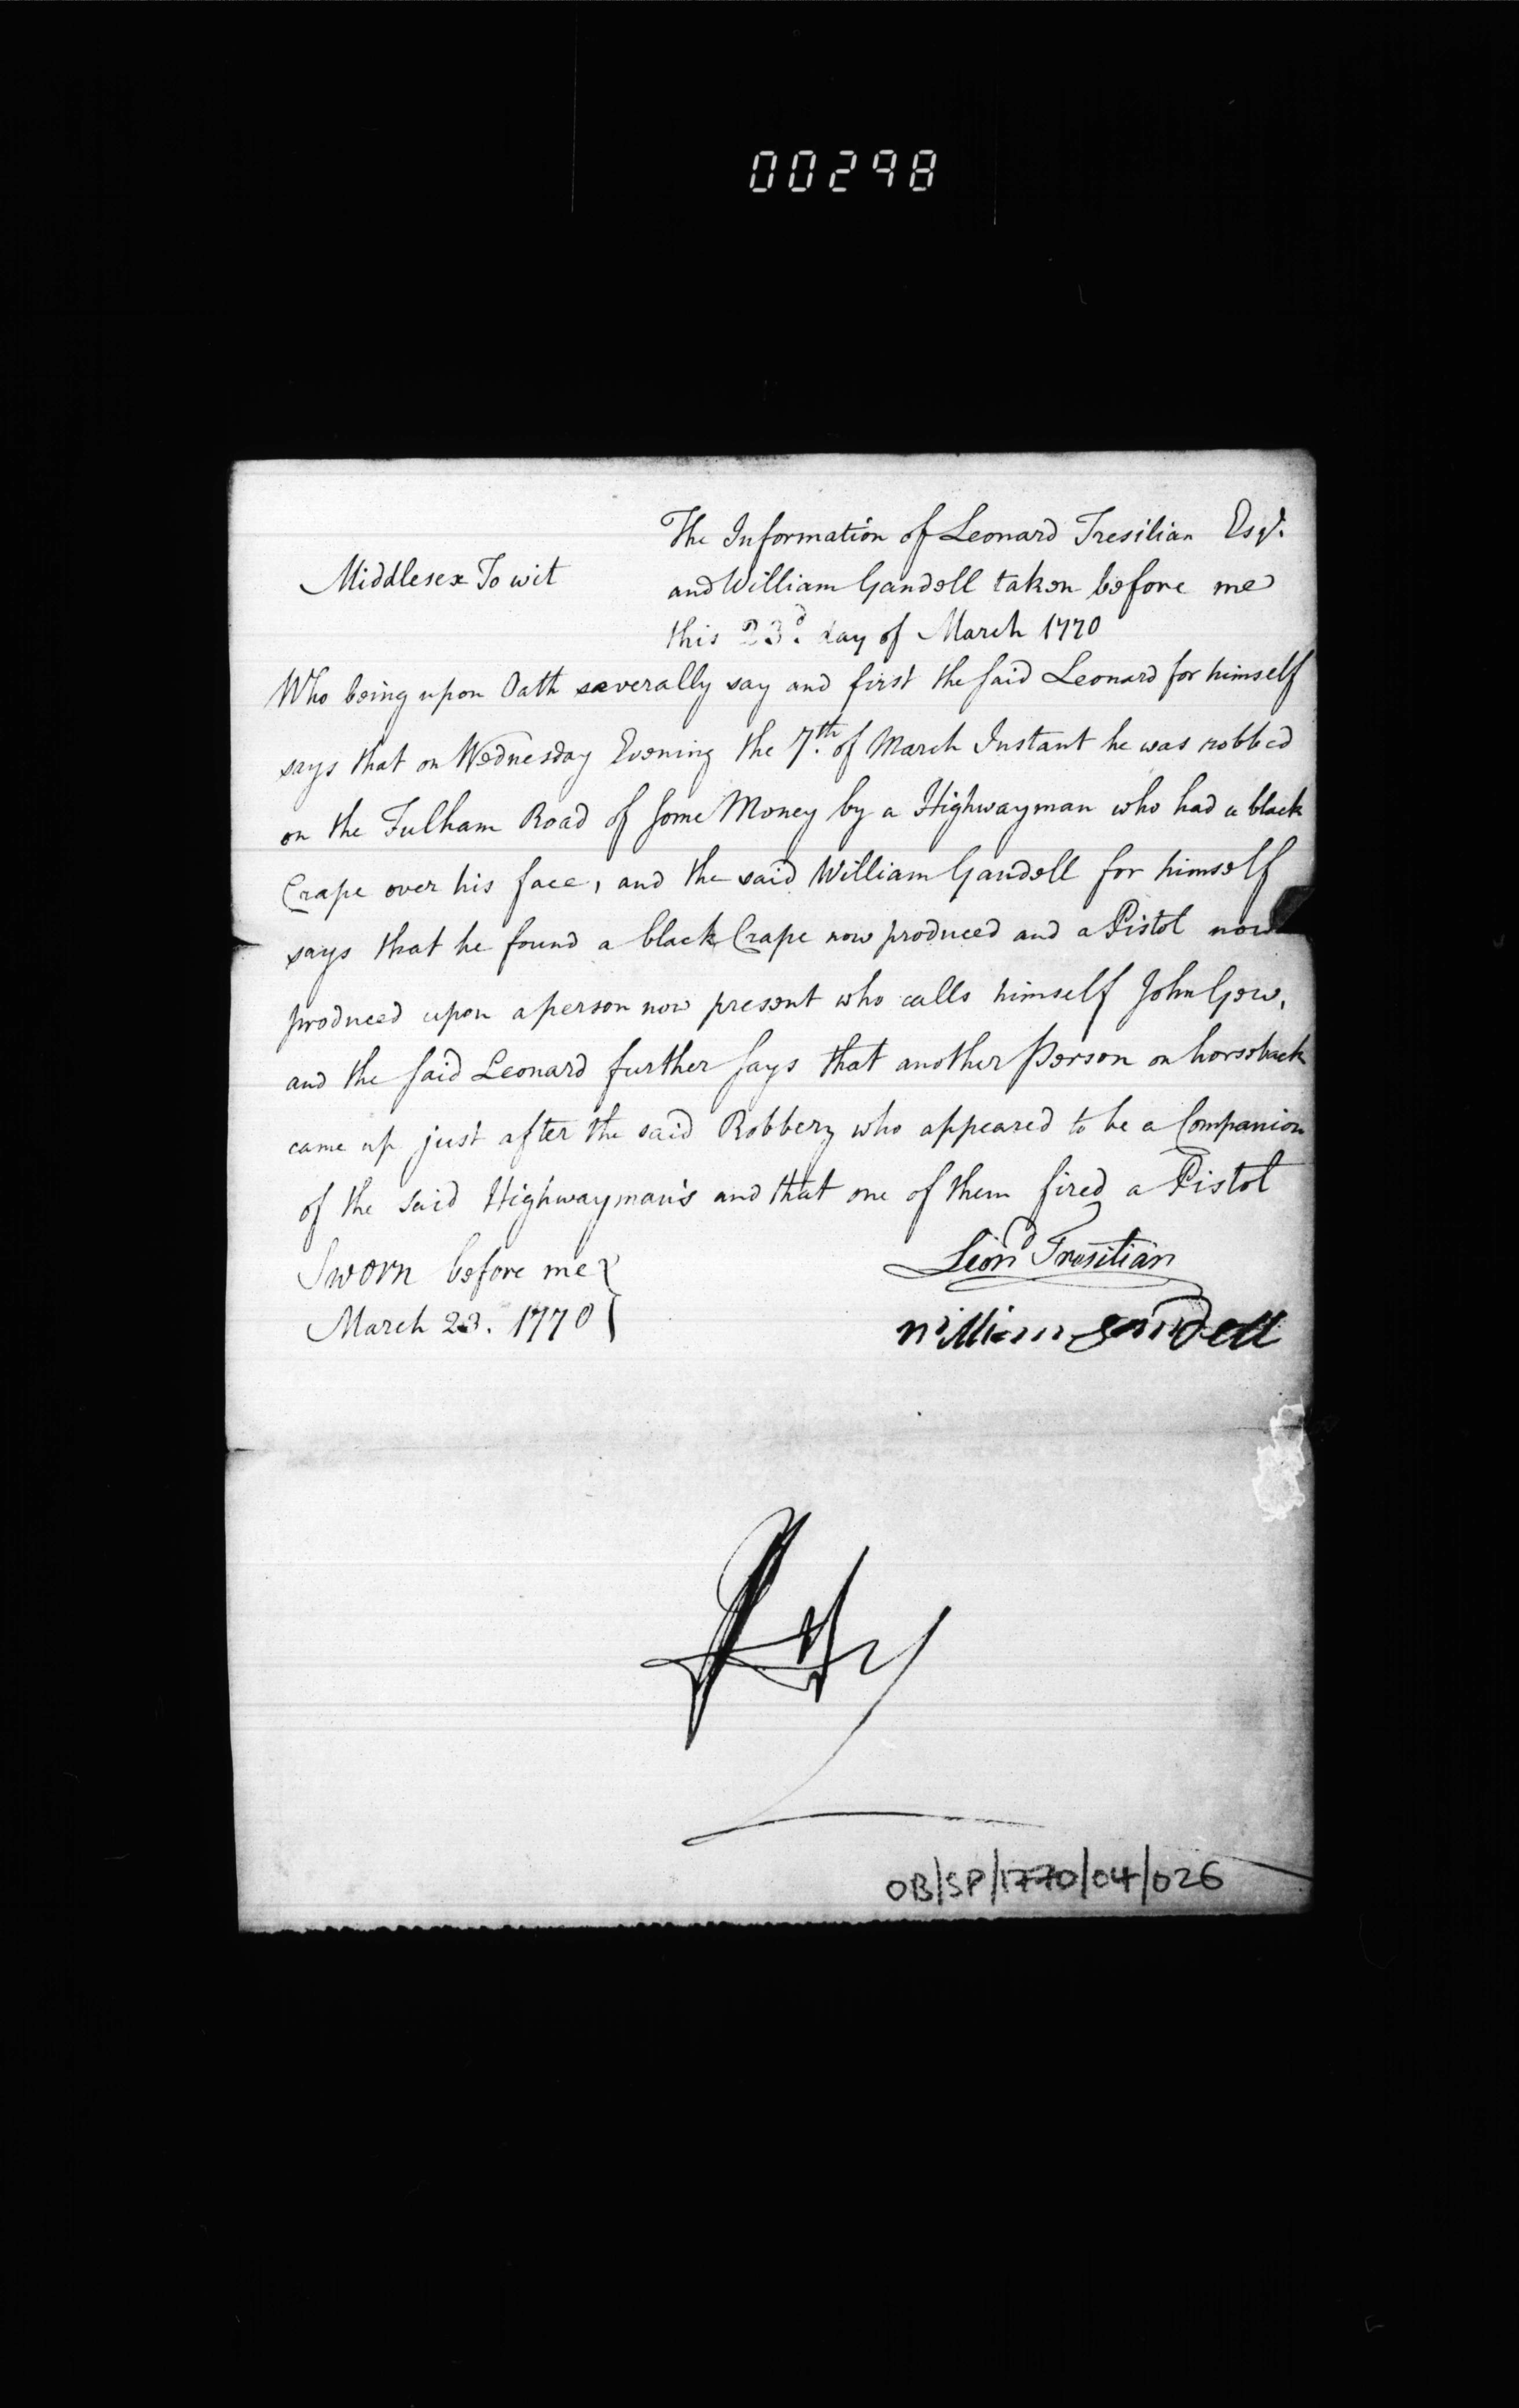 00298
The Information of Leonard Tresilian Esqr.
Middlesex To wit
and William Gandell taken before me
this 23d. day of March 1770
Who being upon Oath severally say and first the said Leonard for himself
says that on Wednesday Evening the 7th. of March Instant he was robbed
on the Fulham Road of some Money by a Highwayman who had a black
Crape over his face, and the said William Gandell for himself
says that he found a black Crape now produced and a Pistol now
produced upon a person now present who calls himself John Gow,
and the said Leonard further says that another Person on horseback
came up just after the said Robbery who appeared to be a Companion
of the said Highwayman's and that one of them fired a Pistol
Sworn before me
Leond Tresilian
March 23. 1770
William Gandell
OB/SP/1770/04/026